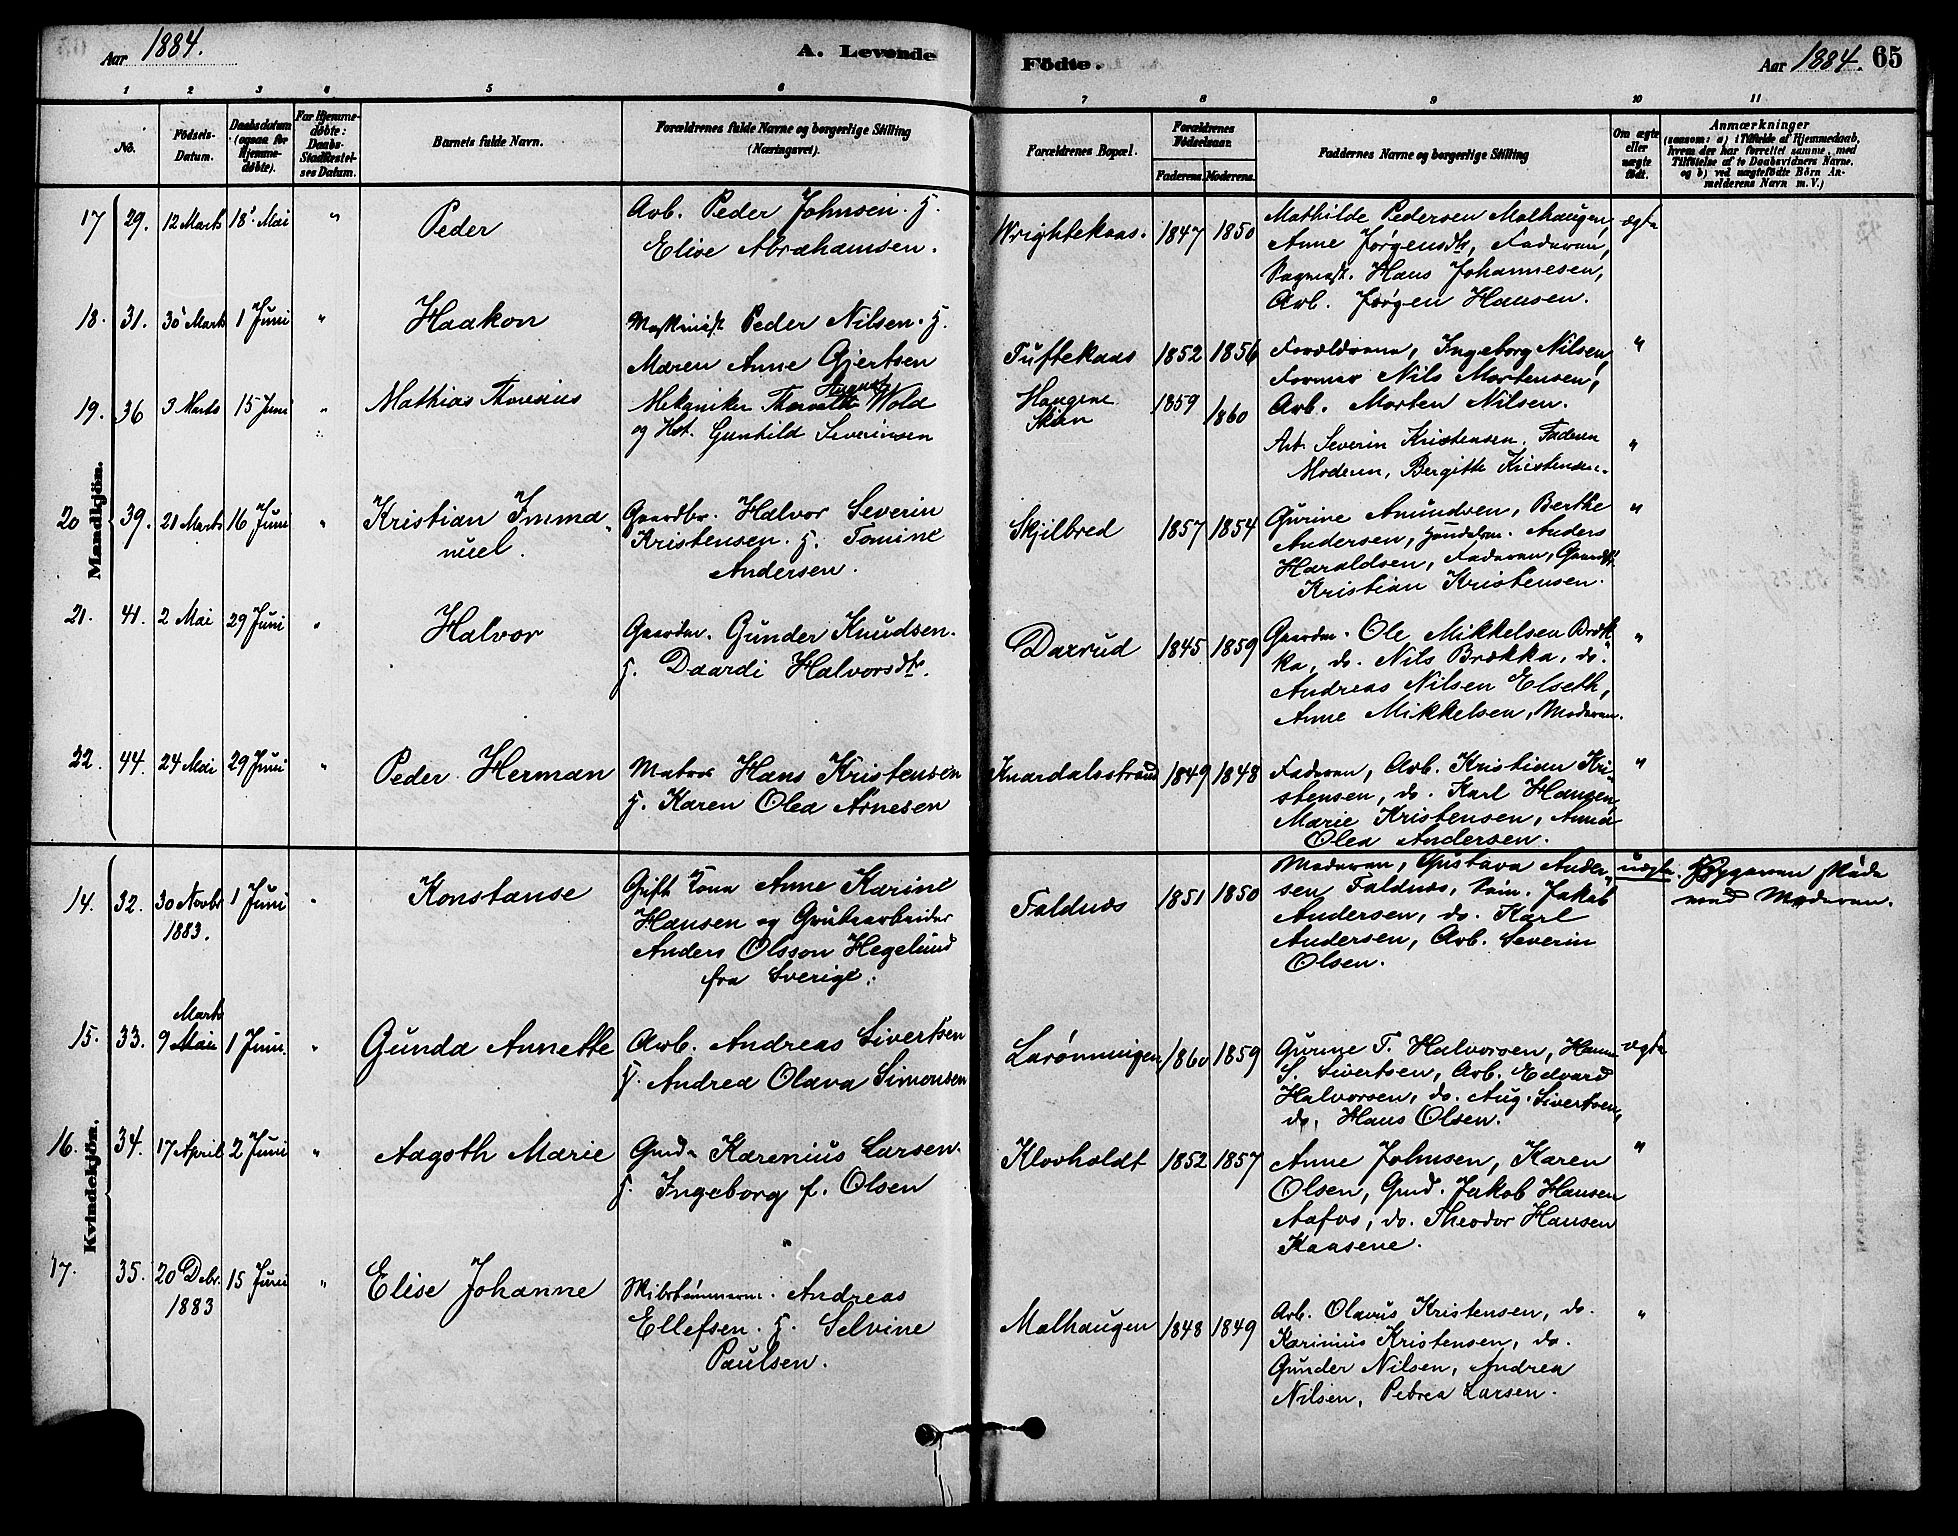 Aar 1884. A. Levende Födte. Aar 1884. 65
1 2 3 4 5 6 7 8 9 10 11
No. Födsels-Datum. Daabsdatum (ogsaa for Hjemme-döbte). Far Hjemme-döbte: Daabs-Stadfæstel-ses Datum. Barnets fulde Navn. Forældrenes fulde Navne og borgerlige Stilling (Næringsvei). Forældrenes Bopæl. Forældrenes Födselsaar. Faderens. Moderens. Faddernes Navne og borgerlige Stilling Om ægte eller uægte født. Anmærkninger
(saasom: a) i Tilfælde af Hjemmedaab,
hvem der har forrettet samme, med
Tilföielse af to Daabsvidners Navne,
og b) ved uægtefödte Börn An-
melderens Navn m. V.)
Mandkjön.
17 29. 12 Marts 18' Mai " Peder Arb. Peder Johnsen. H.
Elise Abrahamsen. Wrightekaas. 1847 1850 Mathilde Pedersen Malhaugen, ægte
Anne Jørgensdtr, Faderen,
Bagmest. Hans Johannesen,
Arb. Jørgen Hansen.
18. 31. 30' Marts 1 Juni " Haakon Maskinist Peder Nilsen. H.
Maren Anne Gjertsen Tuftekaas 1852 1856 Forældrene, Ingeborg Nilsen, "
Former Nils Mortensen,
Arb. Morten Nilsen.
19. 36 3 Marts 15 Juni " Mathias Mekaniker Wold
og Hst. Gunhild Severinsen Haugene
Skien 1859 1860 Arb. Severin Kristensen. Faderen "
Moderen, Bergitte Kristensen.
20 39. 21 Marts 16 Juni " Kristian Imma-
nuel. Gaardbr. Halvor Severin
Kristensen. H. Tomine
Andersen. Skjilbred 1857 1854 Gurine Amundsen, Berthe "
Andersen, Anders
Haraldsen, Faderen, Gaardbr.
Kristian Kristensen.
21. 41. 2 Mai 29 Juni " Halvor Gaardm. Gunder Knudsen.
H. Daardi Halvorsdtr. Daxrud 1845 1859 Gaardm. Ole Mikkelsen Bræk- "
ka, do. Nils Brækka, do.
Andreas Nilsen Elseth,
Anne Mikkelsen, Moderen.
22. 44. 24 Mai 29 Juni " Peder Herman Matros Hans Kristensen
H. Karen Olea Arnesen Knardalsstrand 1849 1848 Faderen, Arb. Kristian Kri- "
stensen, do. Karl Hansen,
Marie Kristensen, Anna
Olea Andersen.
Kvindekjön.
14. 32. 30 Novbr
1883. 1 Juni " Konstanse Gift Kone Anne Karine
Hansen og Grubearbeider
Anders Olsson Hegelund
fra Sverige. Faldnæs 1851 1850 Moderen, Gustava Ander- uægte.
sen Faldnæs, Jakob
Andersen, do. Karl
Andersen, Arb. Severin
Olsen. Byggeren skede
med Moderen.
15. 33. Marts
9 Mai 1 Juni. " Gunda Annette Arb. Andreas Sivertsen
H. Andrea Olava Simonsen Larønningen 1860 1859 Gurine T. Halvorsen, Hanna ægte
S. Sivertsen, Arb. Edvard
Halvorsen, do. Aug. Sivertsen,
do. Hans Olsen.
16. 34. 17 April 2 Juni " Aagoth Marie Gmd. Karenius Larsen.
H. Ingeborg f. Olsen Klovholdt 1852 1857 Anne Johnsen, Karen "
Olsen, Gmd. Jakob Hansen
Aafos, do. Theodor Hansen
Kaasene.
17. 35. 20 Debr.
1883 15 Juni " Elise Johanne Skibstømmerm. Andreas
Ellefsen. H. Selvine
Paulsen. Malhaugen 1848 1849 Arb. Olavus Kristensen, do. "
Karinius Kristensen, do.
Gunder Nilsen, Andrea
Nilsen, Petrea Larsen.